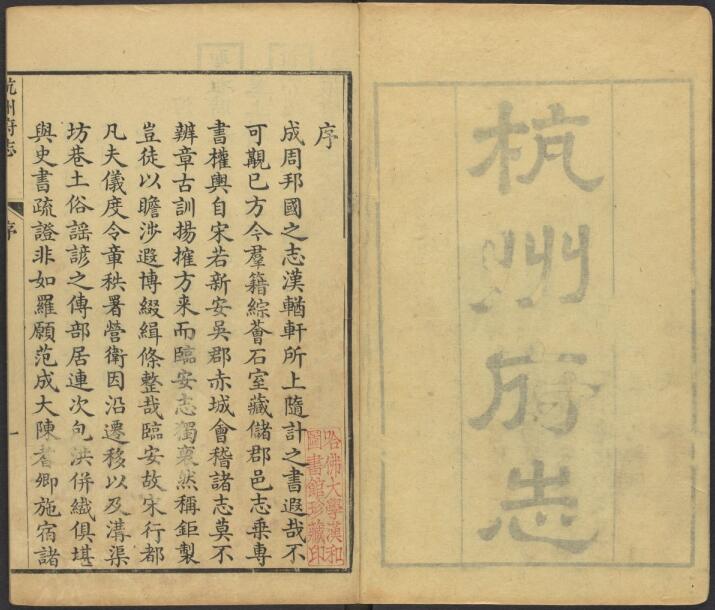 杭州府志
序
成周邦國之志漢輶軒所上隨計之書遐哉不
可觀已方今羣籍綜薈石室藏儲郡邑志乘專
書權輿自宋若新安吳郡赤城會稽諸志莫不
辨章古訓揚搉方来而臨安志獨裒然稱鉅製
豈徒以瞻涉遐博綴緝條整哉臨安故宋行都
凡夫儀度令章秩署營衛因沿遷移以及溝渠
坊巷土俗謡諺之傳部居連次包洪併纖俱堪
與史書疏證非如羅願范成大陳耆卿施宿諸
哈佛大學漢和
圖書館珍藏印
杭州府志
序
一